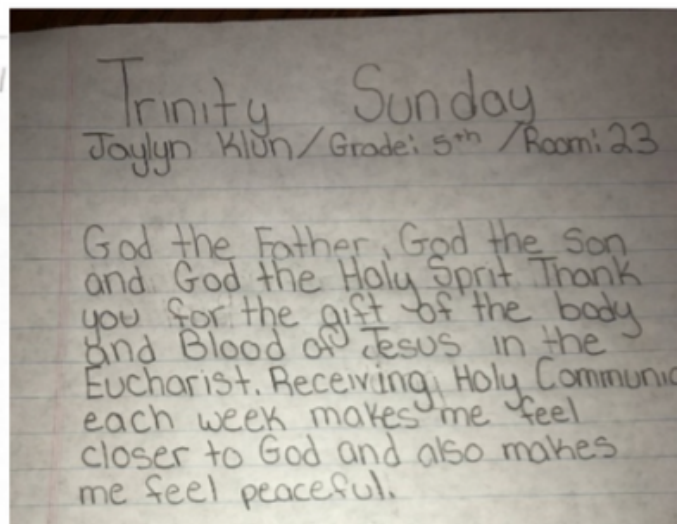 Trinity Sunday
Jaylyn Klun/Grade: 5th/Room: 23
God the Father, God the Son
and God the Holy Sprit Thank
you for the gift of the body
and Blood of Jesus in the
Eucharist. Receiving Holy Communio
each week makes me feel
closer to God and also makes
me feel peaceful.